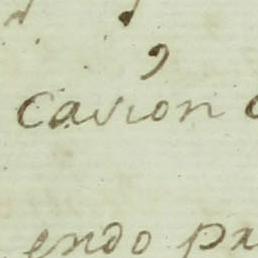 cavion
endo pa